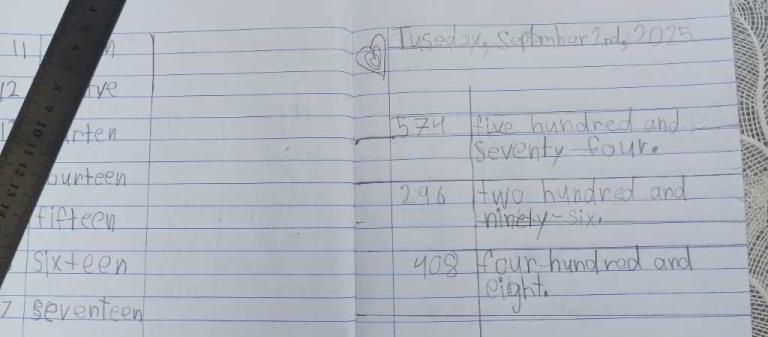 11
12 ve
rten
ourteen
fifteen
sixteen
7 seventeen
Tuseday, September 2nd, 2025
574 five hundred and
seventy four.
296 two hundred and
ninety-six.
408 four hundred and
eight.